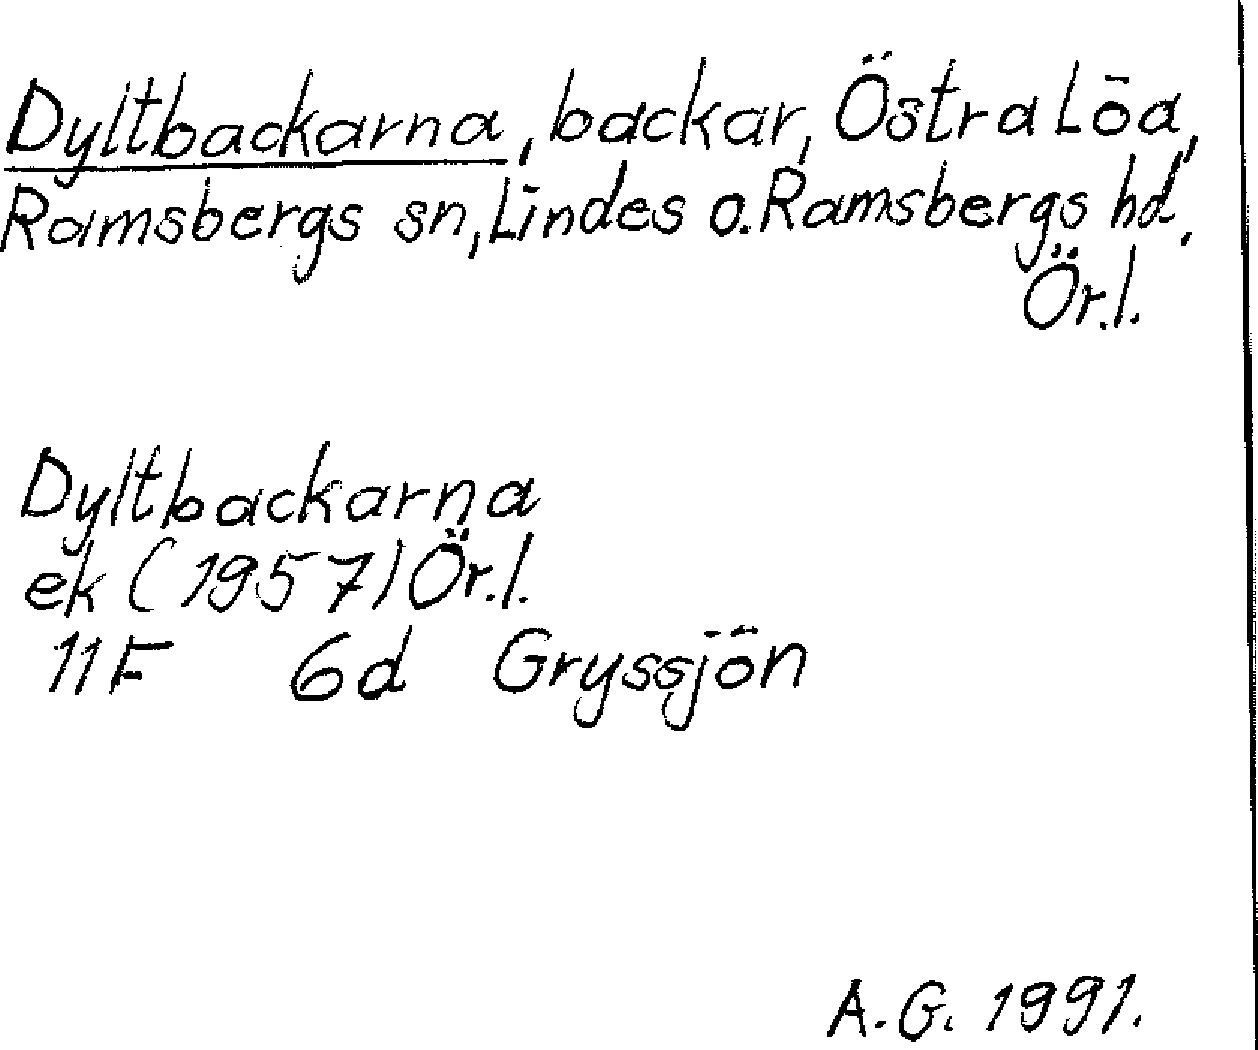 Dyltbackarna, backar, Östra Löa,
Ramsbergs sn, Lindes o. Ramsbergs hd,
Ör.l.
Dyltbackarna
ek (1957) Ör.l.
11F 6d Gryssjön
A.G. 1991.